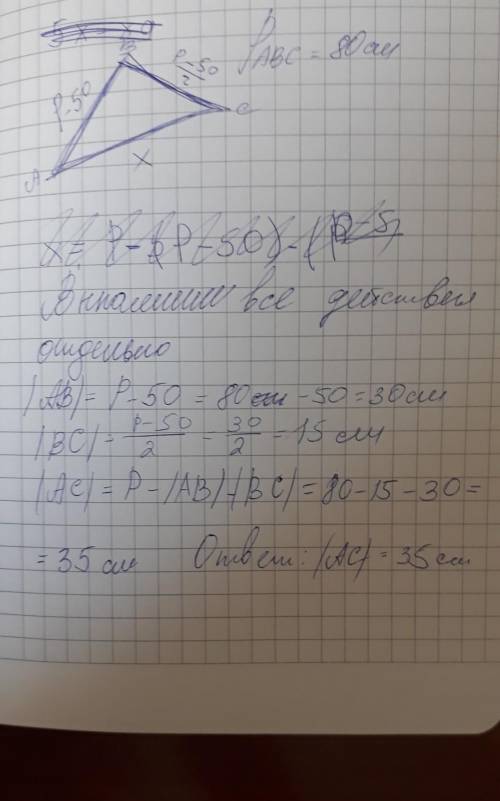 B
P-50
P-50
2
C
A
X
P ABC = 80см
X = P - (P-50) - (P-5
Выполним все действия
отдельно
|AB| = P-50 = 80см - 50 = 30см
|BC| = P-50/2 = 30/2 = 15 см
|AC| = P - |AB| - |BC| = 80-15-30=
= 35 см Ответ: |AC| = 35см